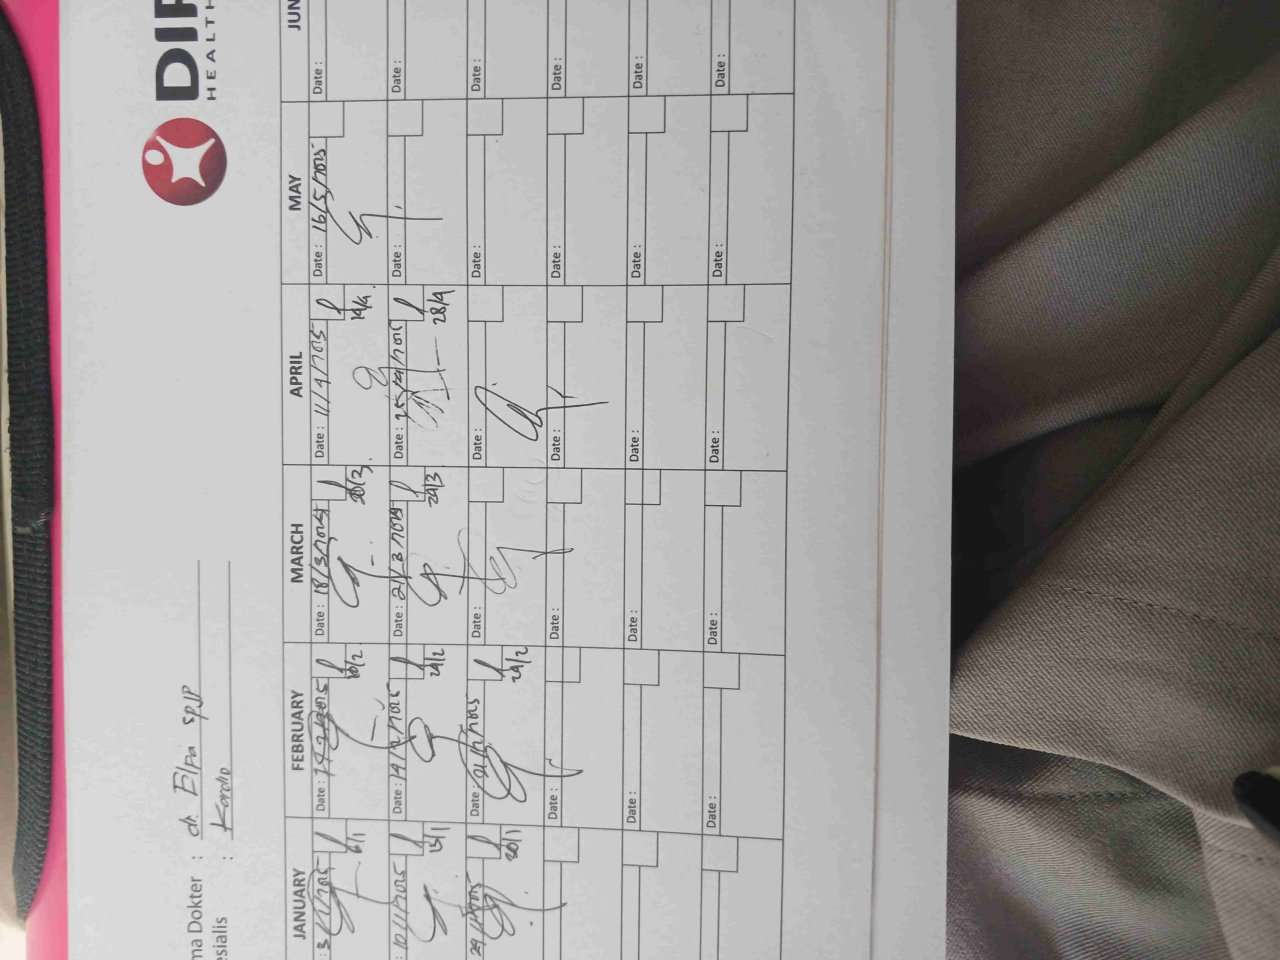 DIP
HEALTH
ma Dokter : dr. Elpa SpJP
esialis : Kardio
JANUARY FEBRUARY MARCH APRIL MAY JUN
: 3/1/2025 6/1 Date : Date : 18/3/2025 20/3 Date : 11/4/2025 14/4 Date : 16/5/2025 Date :
: 10/1/2025 13/1 Date : 14/2/2025 24/2 Date : 21/3/2025 24/3 Date : 25/4/2025 28/4 Date : Date :
Date : 21/2/2025 24/2 Date : Date : Date : Date :
Date : Date : Date : Date : Date :
Date : Date : Date : Date : Date :
Date : Date : Date : Date : Date :